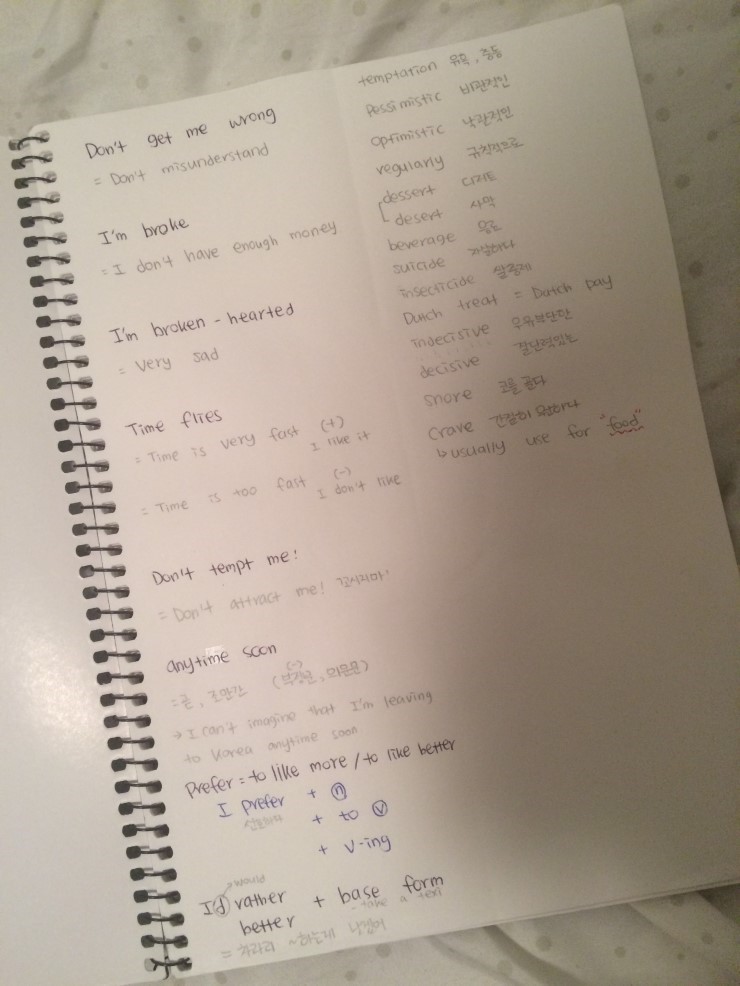 Don't get me wrong
= Don't misunderstand
I'm broke
= I don't have enough money
I'm broken - hearted
= Very sad
Time flies
= Time is very fast (+) I like it
= Time is too fast (-) I don't like
Don't tempt me!
= Don't attract me! 꼬시지마!
anytime soon
(-)
= 곧, 조만간 (부정문, 의문문)
→ I can't imagine that I'm leaving
to Korea anytime soon
Prefer = to like more / to like better
I prefer + ⓝ
선호하다 + to ⓥ
+ V-ing
would
I'd rather + base form
better - take a
= 차라리 ~하는게 낫겠어
temptation 유혹, 충동
Pessimistic 비관적인
optimistic 낙관적인
regularly 규칙적으로
dessert 디저트
desert 사막
beverage 음료
suicide 자살하다
insecticide 살충제
Dutch treat = Dutch pay
indecisive 우유부단한
decisive 결단력있는
snore 코를 골다
crave 간절히 원하다
↳ usually use for "food"